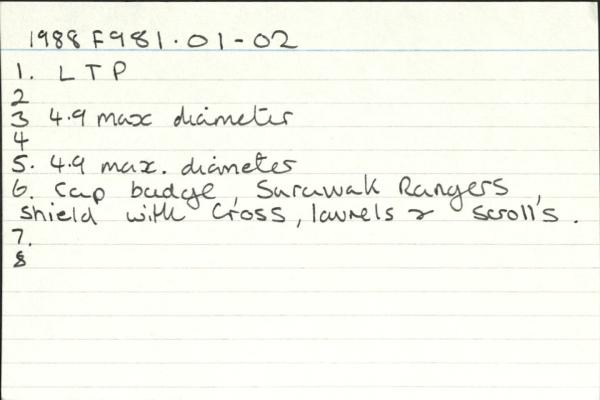 1988 F981.01-02
1. L T P
2
3 4.9 max diameter
4
5. 4.9 max. diameter
6. Cap badge, Sarawak Rangers,
shield with Cross, laurels & scroll's.
7.
8